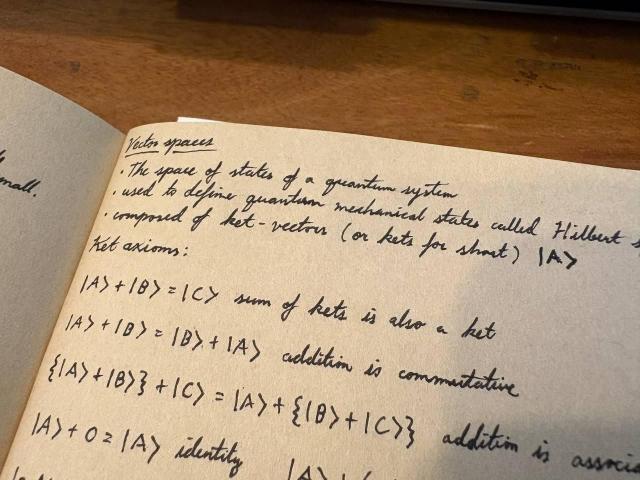 mall.
Vector spaces
· The space of states of a quantum system
· used to define quantum mechanical states called Hilbert
· composed of ket-vectors (or kets for short) |A>
Ket axioms:
|A> + |B> = |C> sum of kets is also a ket
|A> + |B> = |B> + |A> addition is commutative
{|A> + |B>} + |C> = |A> + {|B> + |C>} addition is associ
|A> + 0 = |A> identity |A>